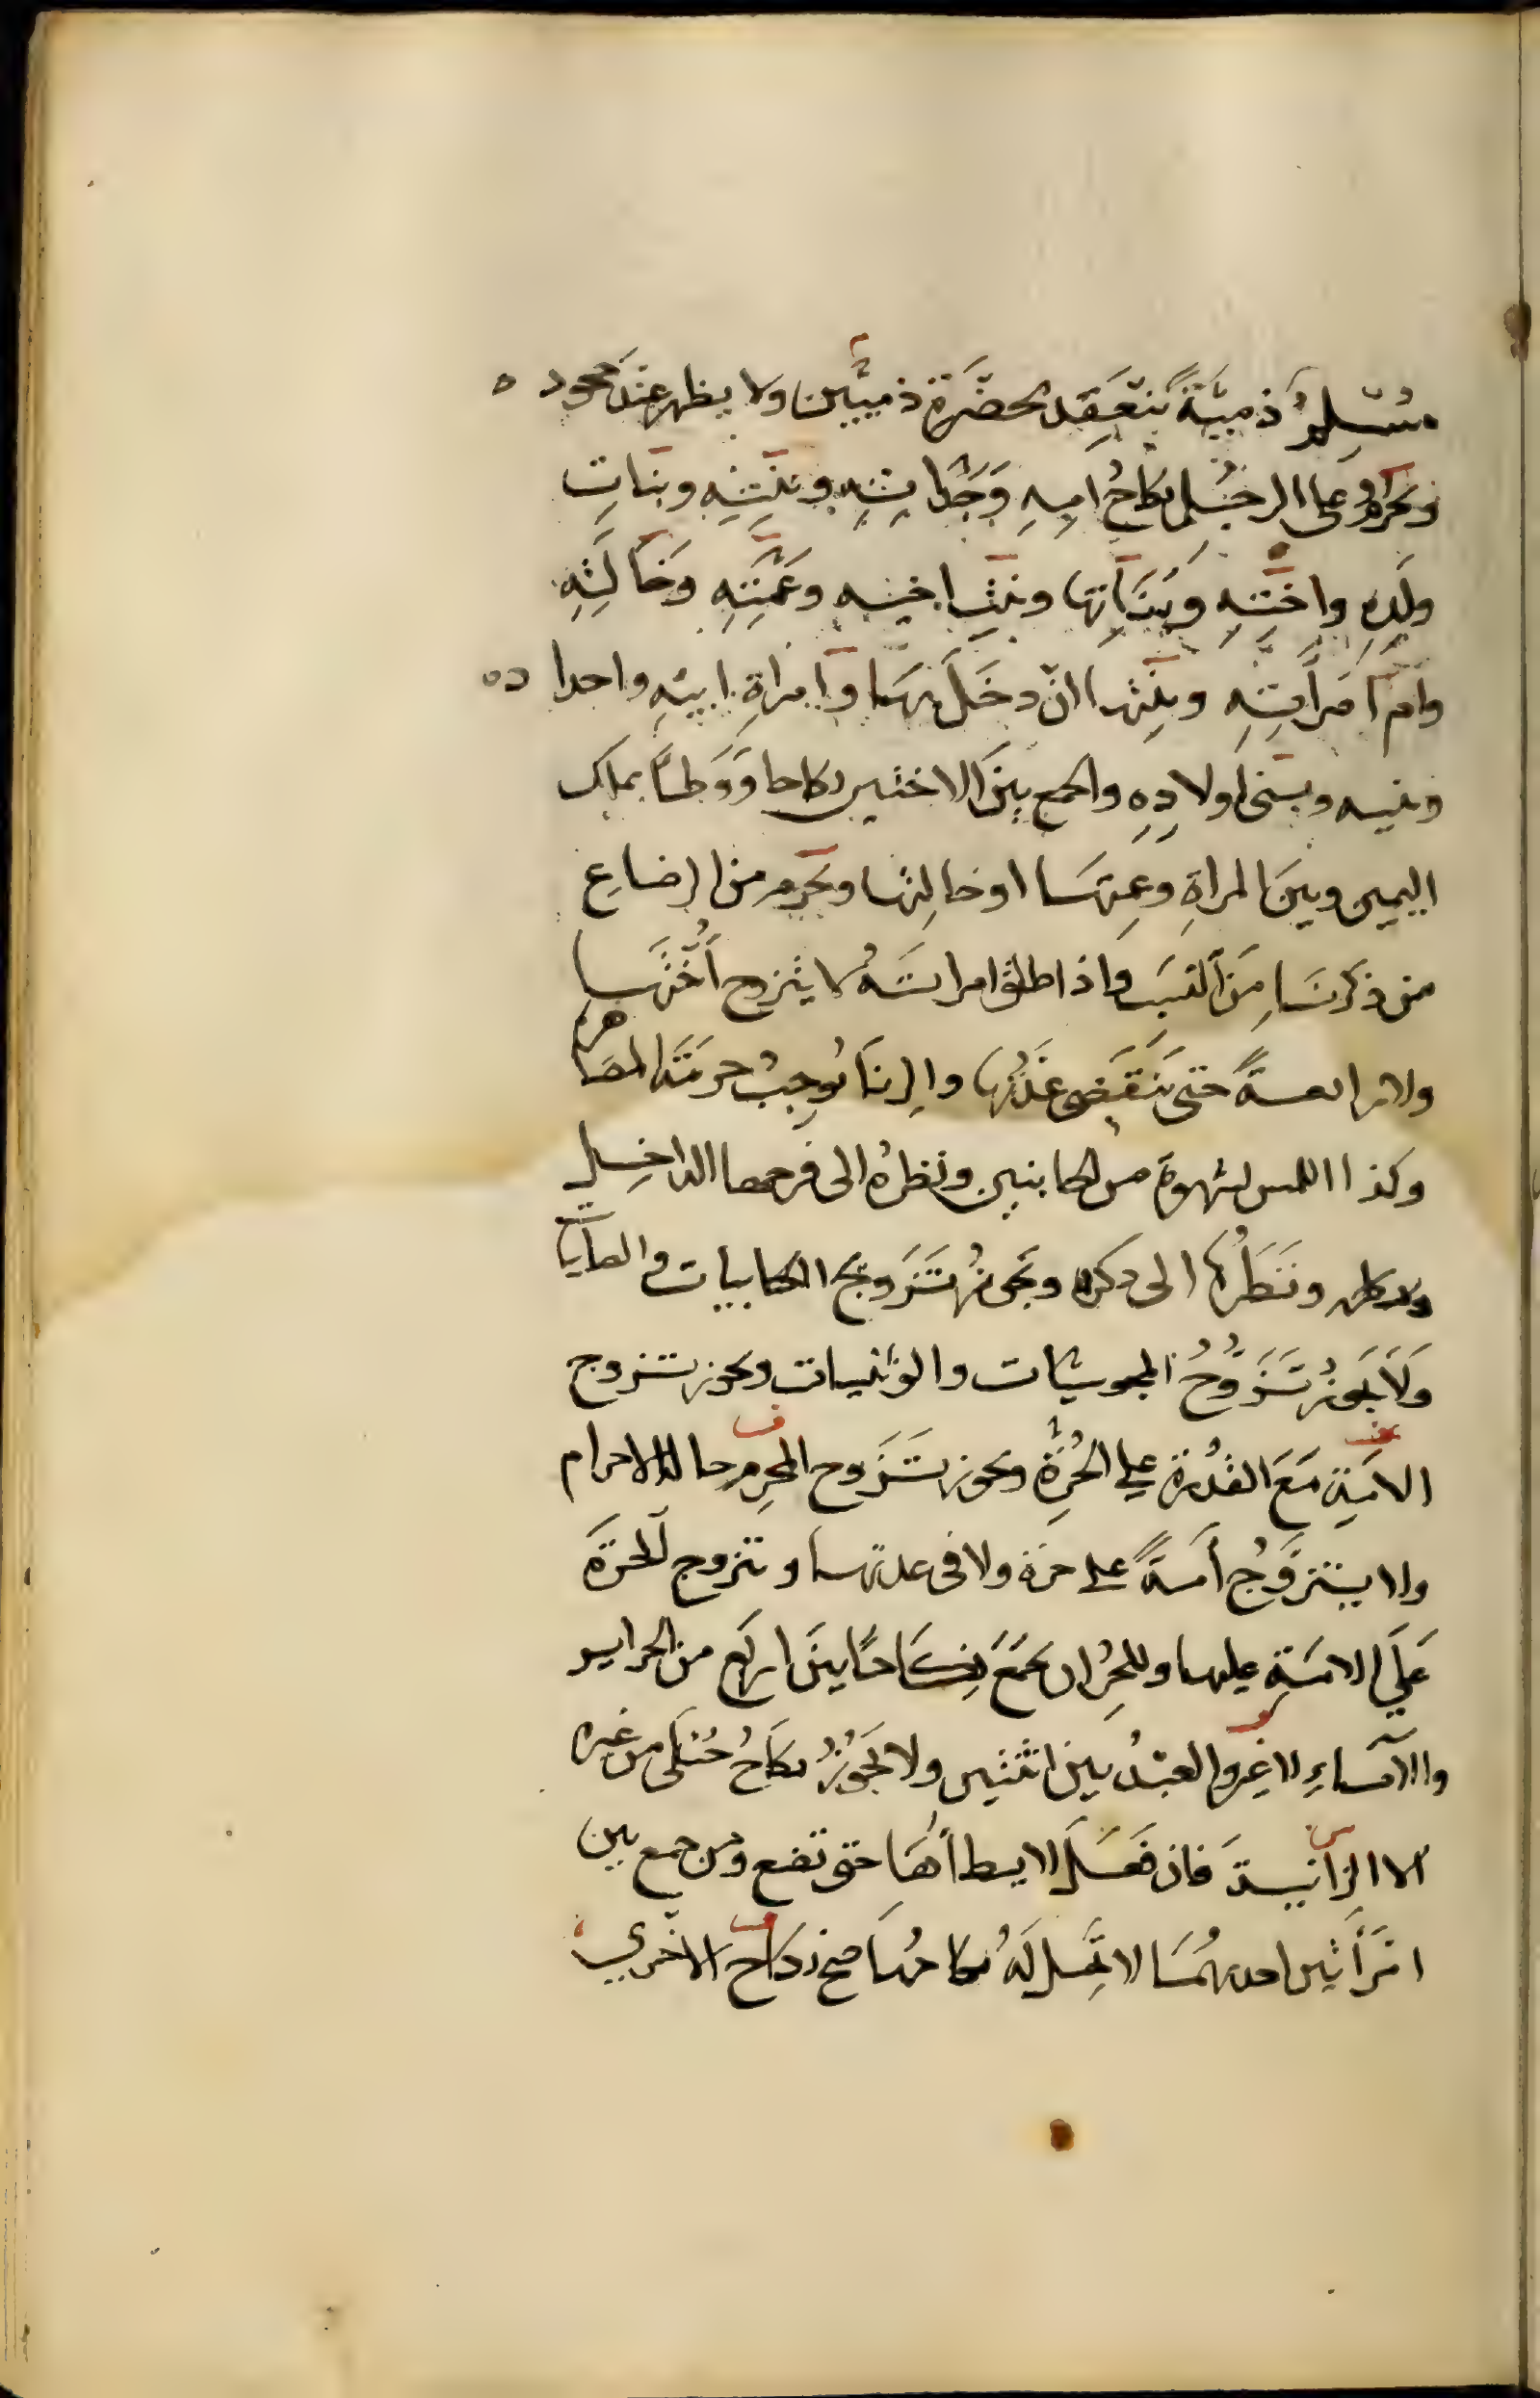 مُسْلِمٌ ذميَّةً ينعَقِد بحضْرَة ذميّين ولا يظهر عند جحوده
ويحرم على الرجُل نكاحُ امِهِ وَجَدّاتِهِ وبِنتِهِ وبناتِ
ولَدِهِ واختِهِ وبَنَاتِها وبنتِ اخيه وعمَّتِهِ وخَالَتِهِ
وام امرَأَتِهِ وبنتِها ان دخَلَ بهَا وامراةِ ابيهِ واجداده
وبنيه وبنى اولادِهِ والجمع بينَ الاختين نكاحا وَوَطأً بملك
اليمين وبينَ المراةِ وعمتهَا او خالتِها ويحرم من الرضاعِ
من ذكرنَا مِنَ النسَبِ واذا طلق امراتَهُ لا يتزوج أُختَهَا
ولا رابعةً حتى تَنقَضِى عدَّتُها والزنَا يُوجِبُ حرمَةَ المصَاهرة
وكذا اللمس بشهوة من الجانبين ونظرُه الى فرجها الداخِلِ
ونَظَرُها الى ذكره ويجوزُ تَزَوج الكتابيات والصابيات
وَلَا يَجوزُ تَزَوُّجُ المجوسيَّات والوثنيات ويجوز تزوج
الامَةِ مَعَ القُدْرة على الحُرَّة ويجوز تَزَوج المحرِم حالة الاحرام
ولا يتزوَّجُ أمةً على حرة ولا فى عدتها وتزوج الحرَة
عَلَى الامَةِ عليها وللحُر ان يجمَعَ نِكَاحًا بينَ اربَع من الحراير
والامَاءِ لا غير والعبْدُ بين اثنتين ولا يَجُوزُ نكاحُ حُبْلَى من غيره
الا الزانيةَ فان فعَلَ لا يطأهَا حتى تضع ومن جمع بين
امْرَأَتين احدهُمَا لا تحِل لَهُ نكاحُهَا صح نكاح الاخرى